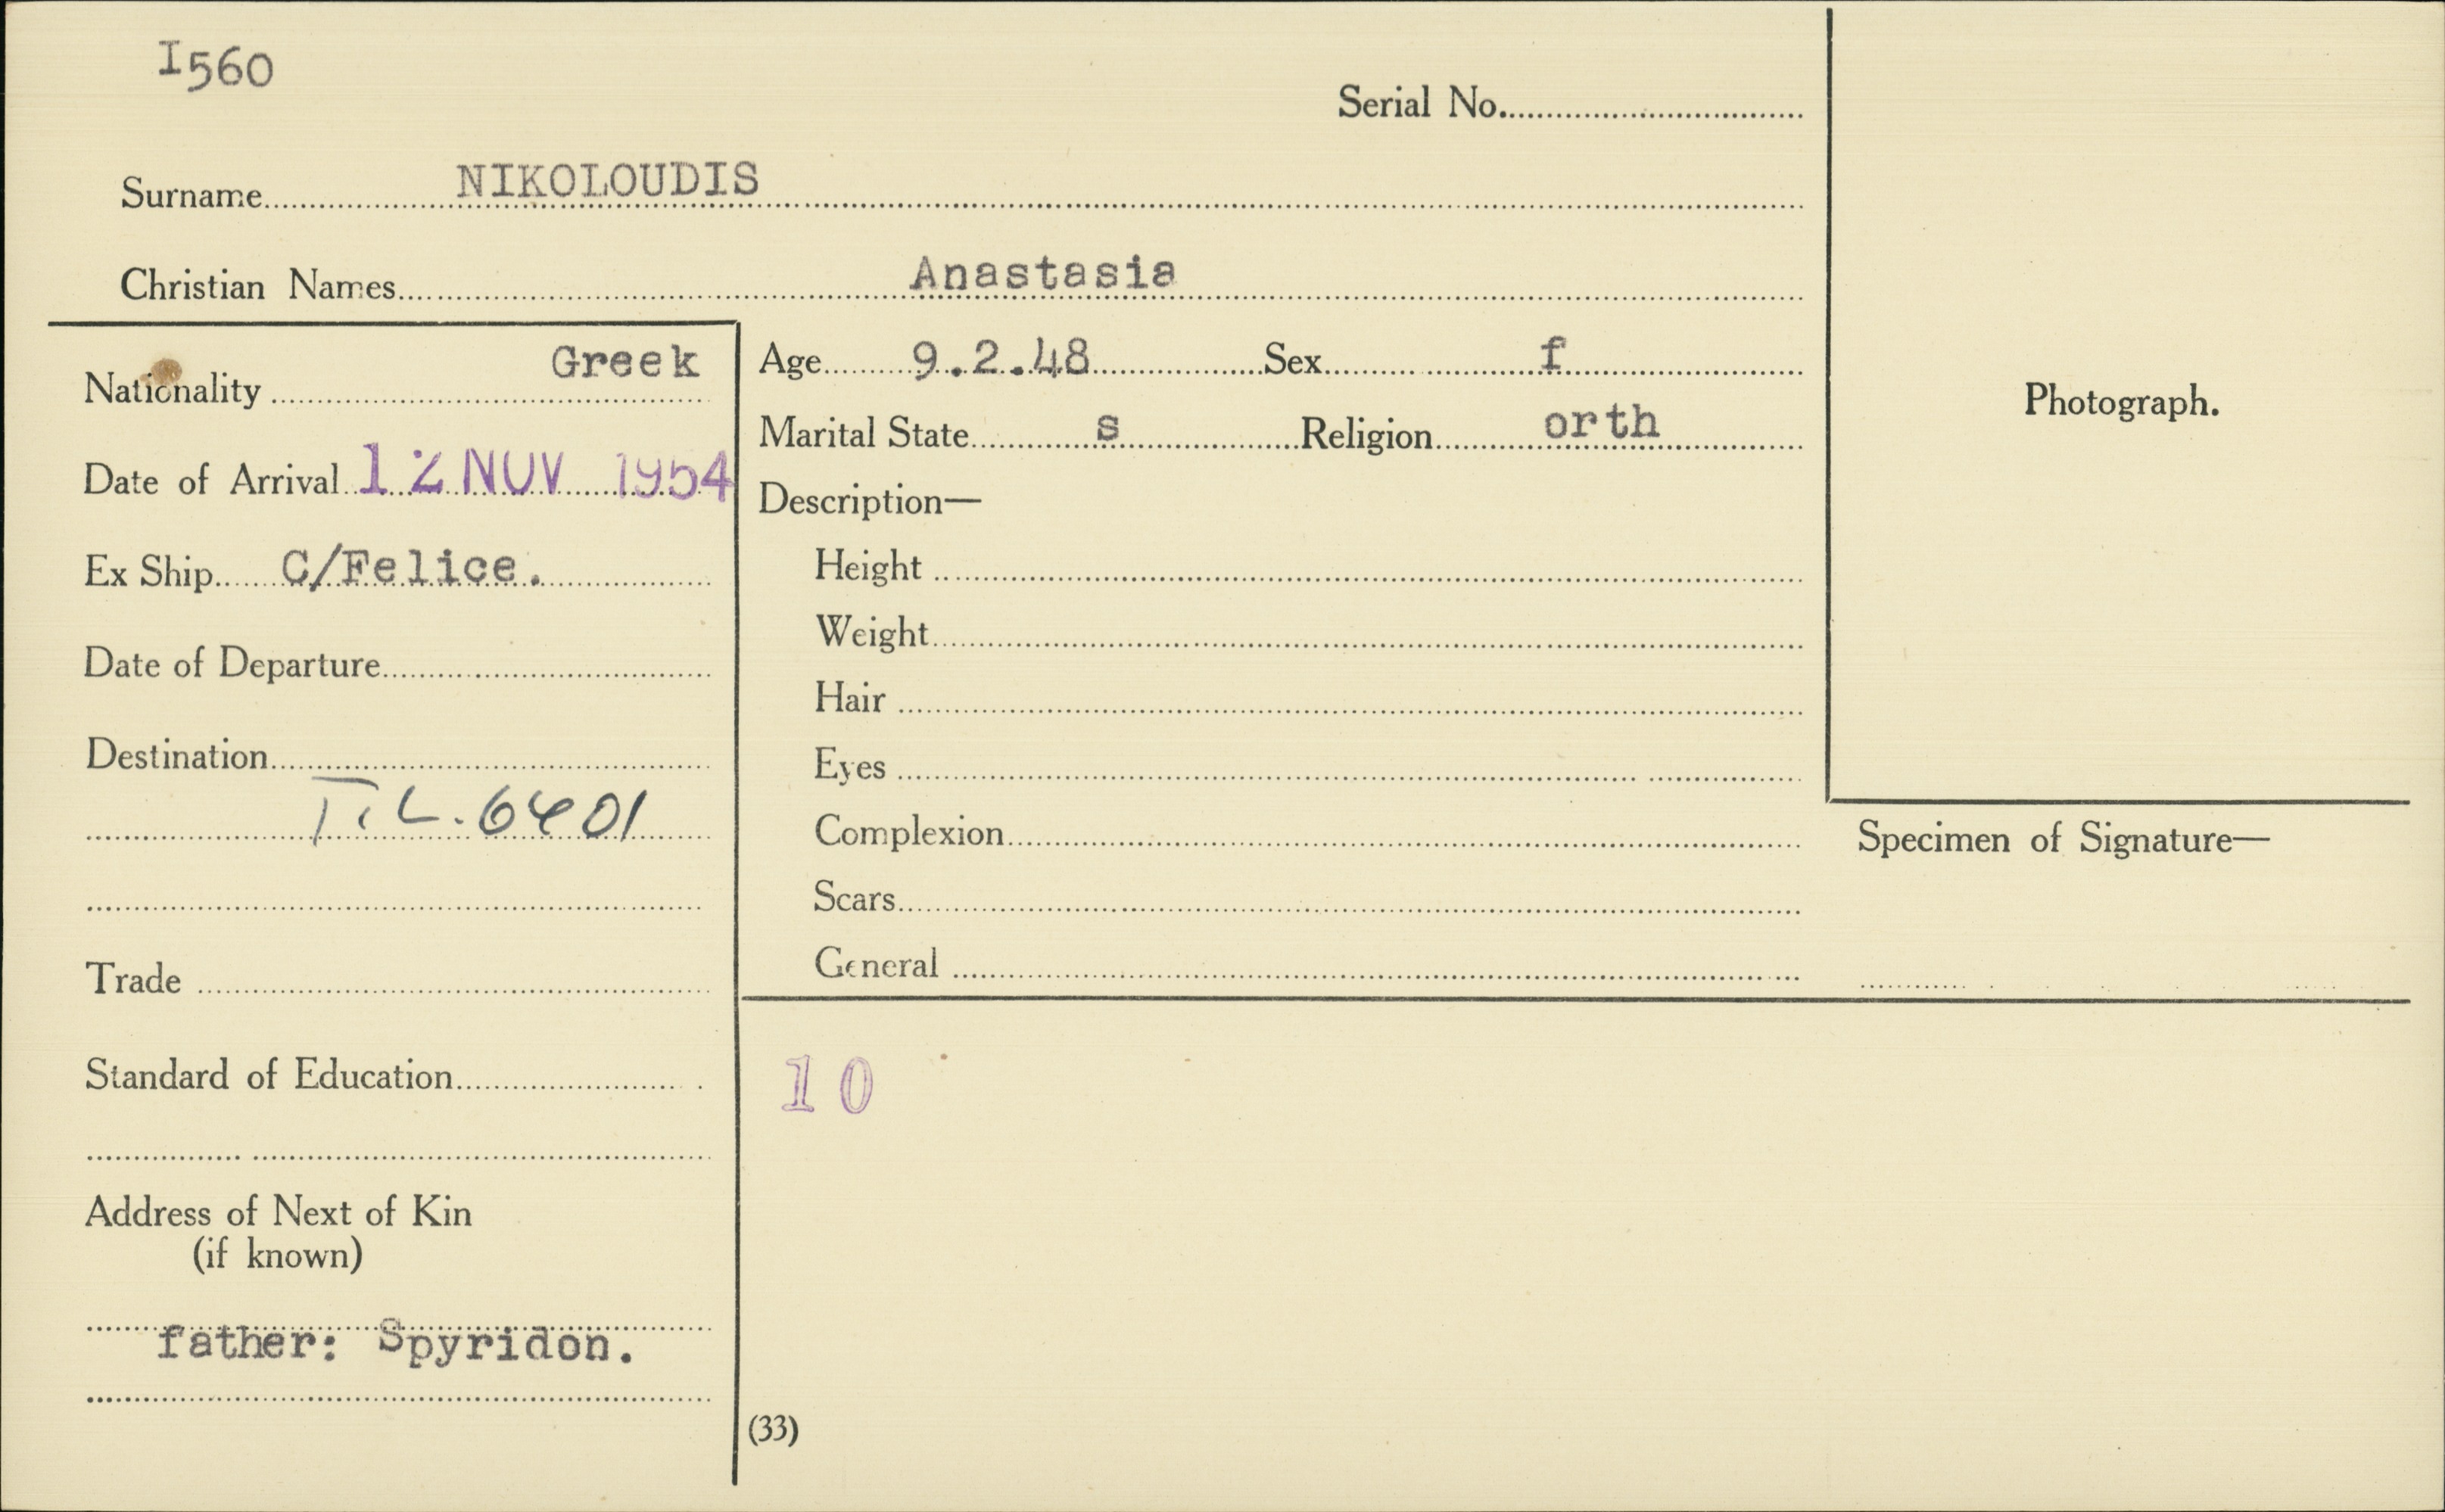 I560
Serial No.
Surname NIKOLOUDIS
Christian Names Anastasia
Nationality Greek
Date of Arrival 12 NOV 1954
Ex Ship C/Felice.
Date of Departure
Destination
T.L. 6401
Trade
Standard of Education
Address of Next of Kin
(if known)
father: Spyridon.
Age 9.2.48 Sex f
Marital State s Religion orth
Description—
Height
Weight
Hair
Eyes
Complexion
Scars
General
Photograph.
Specimen of Signature—
10
(33)